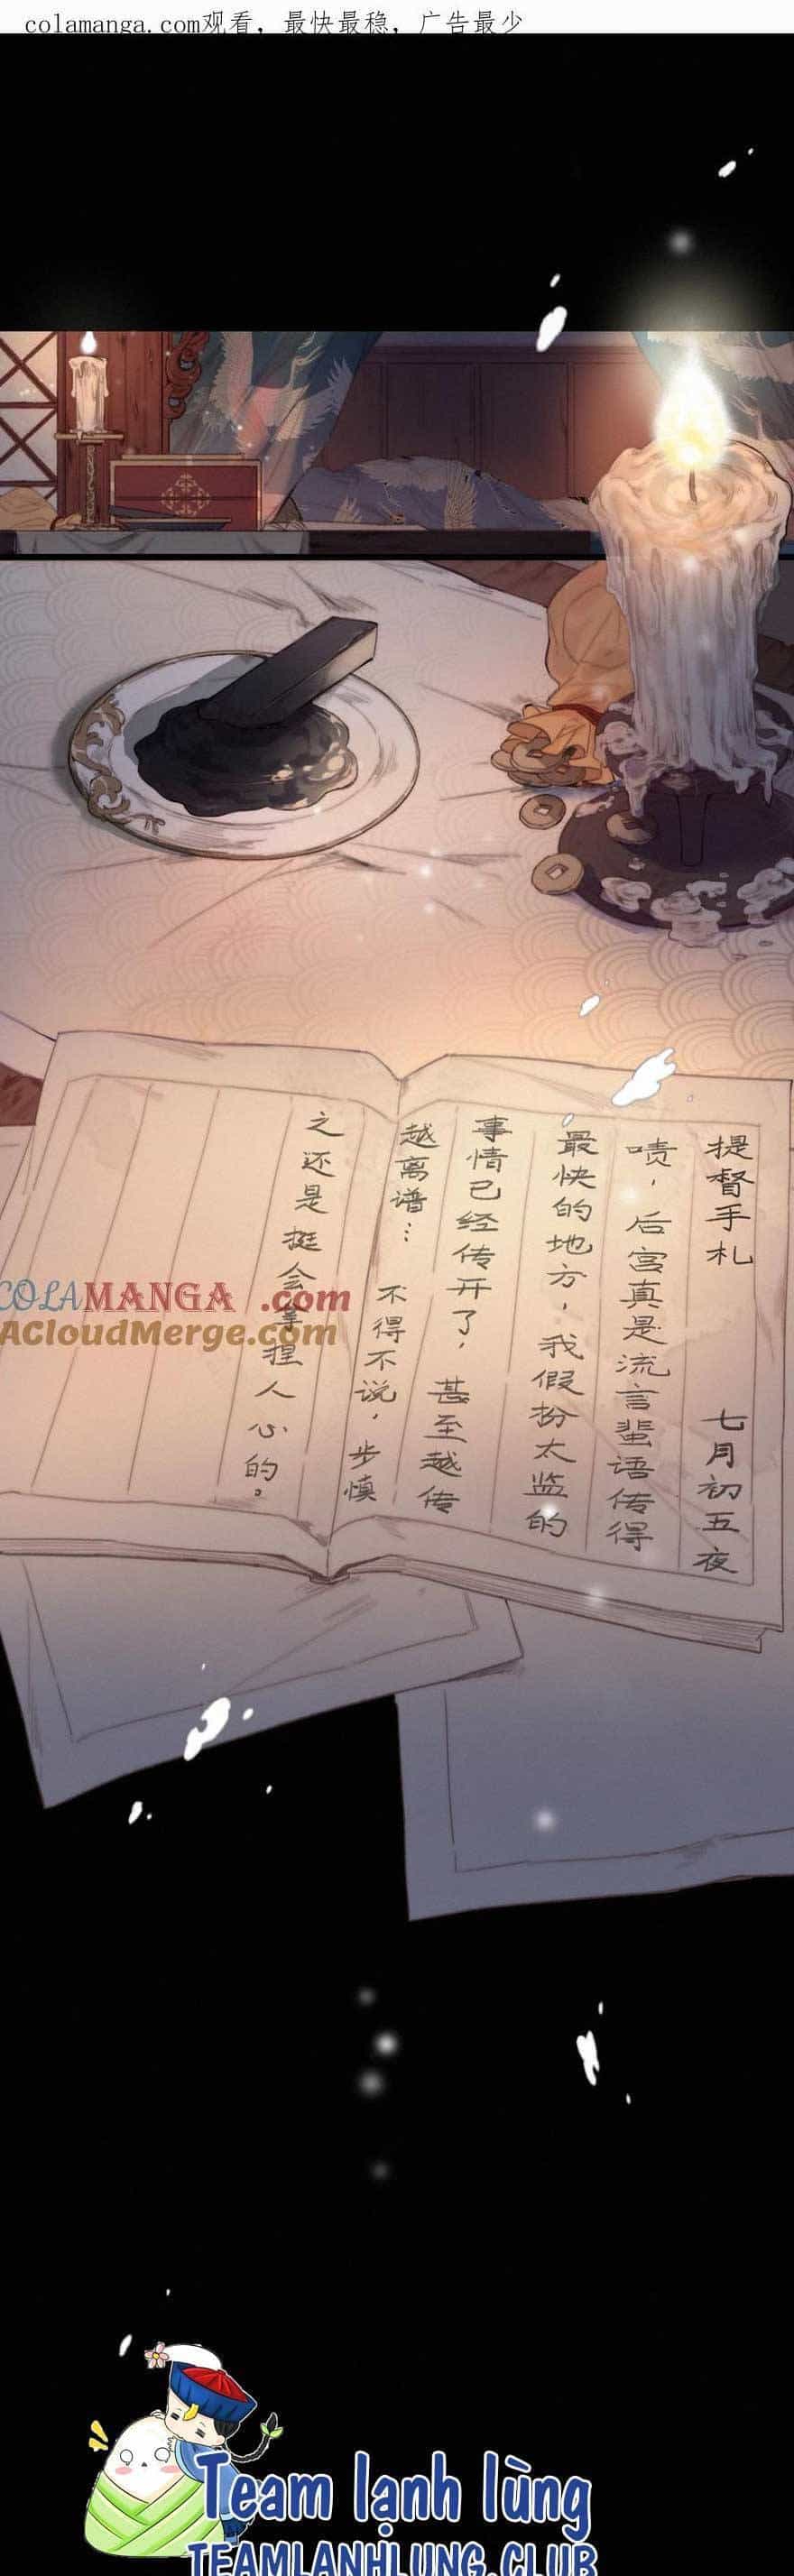 colamanga.com观看，最快最稳，广告最少
提督手札 七月初五夜
啧，后宫真是流言蜚语传得
最快的地方，我假扮太监的
事情已经传开了，甚至越传
越离谱… 不得不说，步慎
之还是挺会拿捏人心的。
COLAMANGA.com
ACloudMerge.com
Team lạnh lùng
TEAMLANHLUNG.CLUB